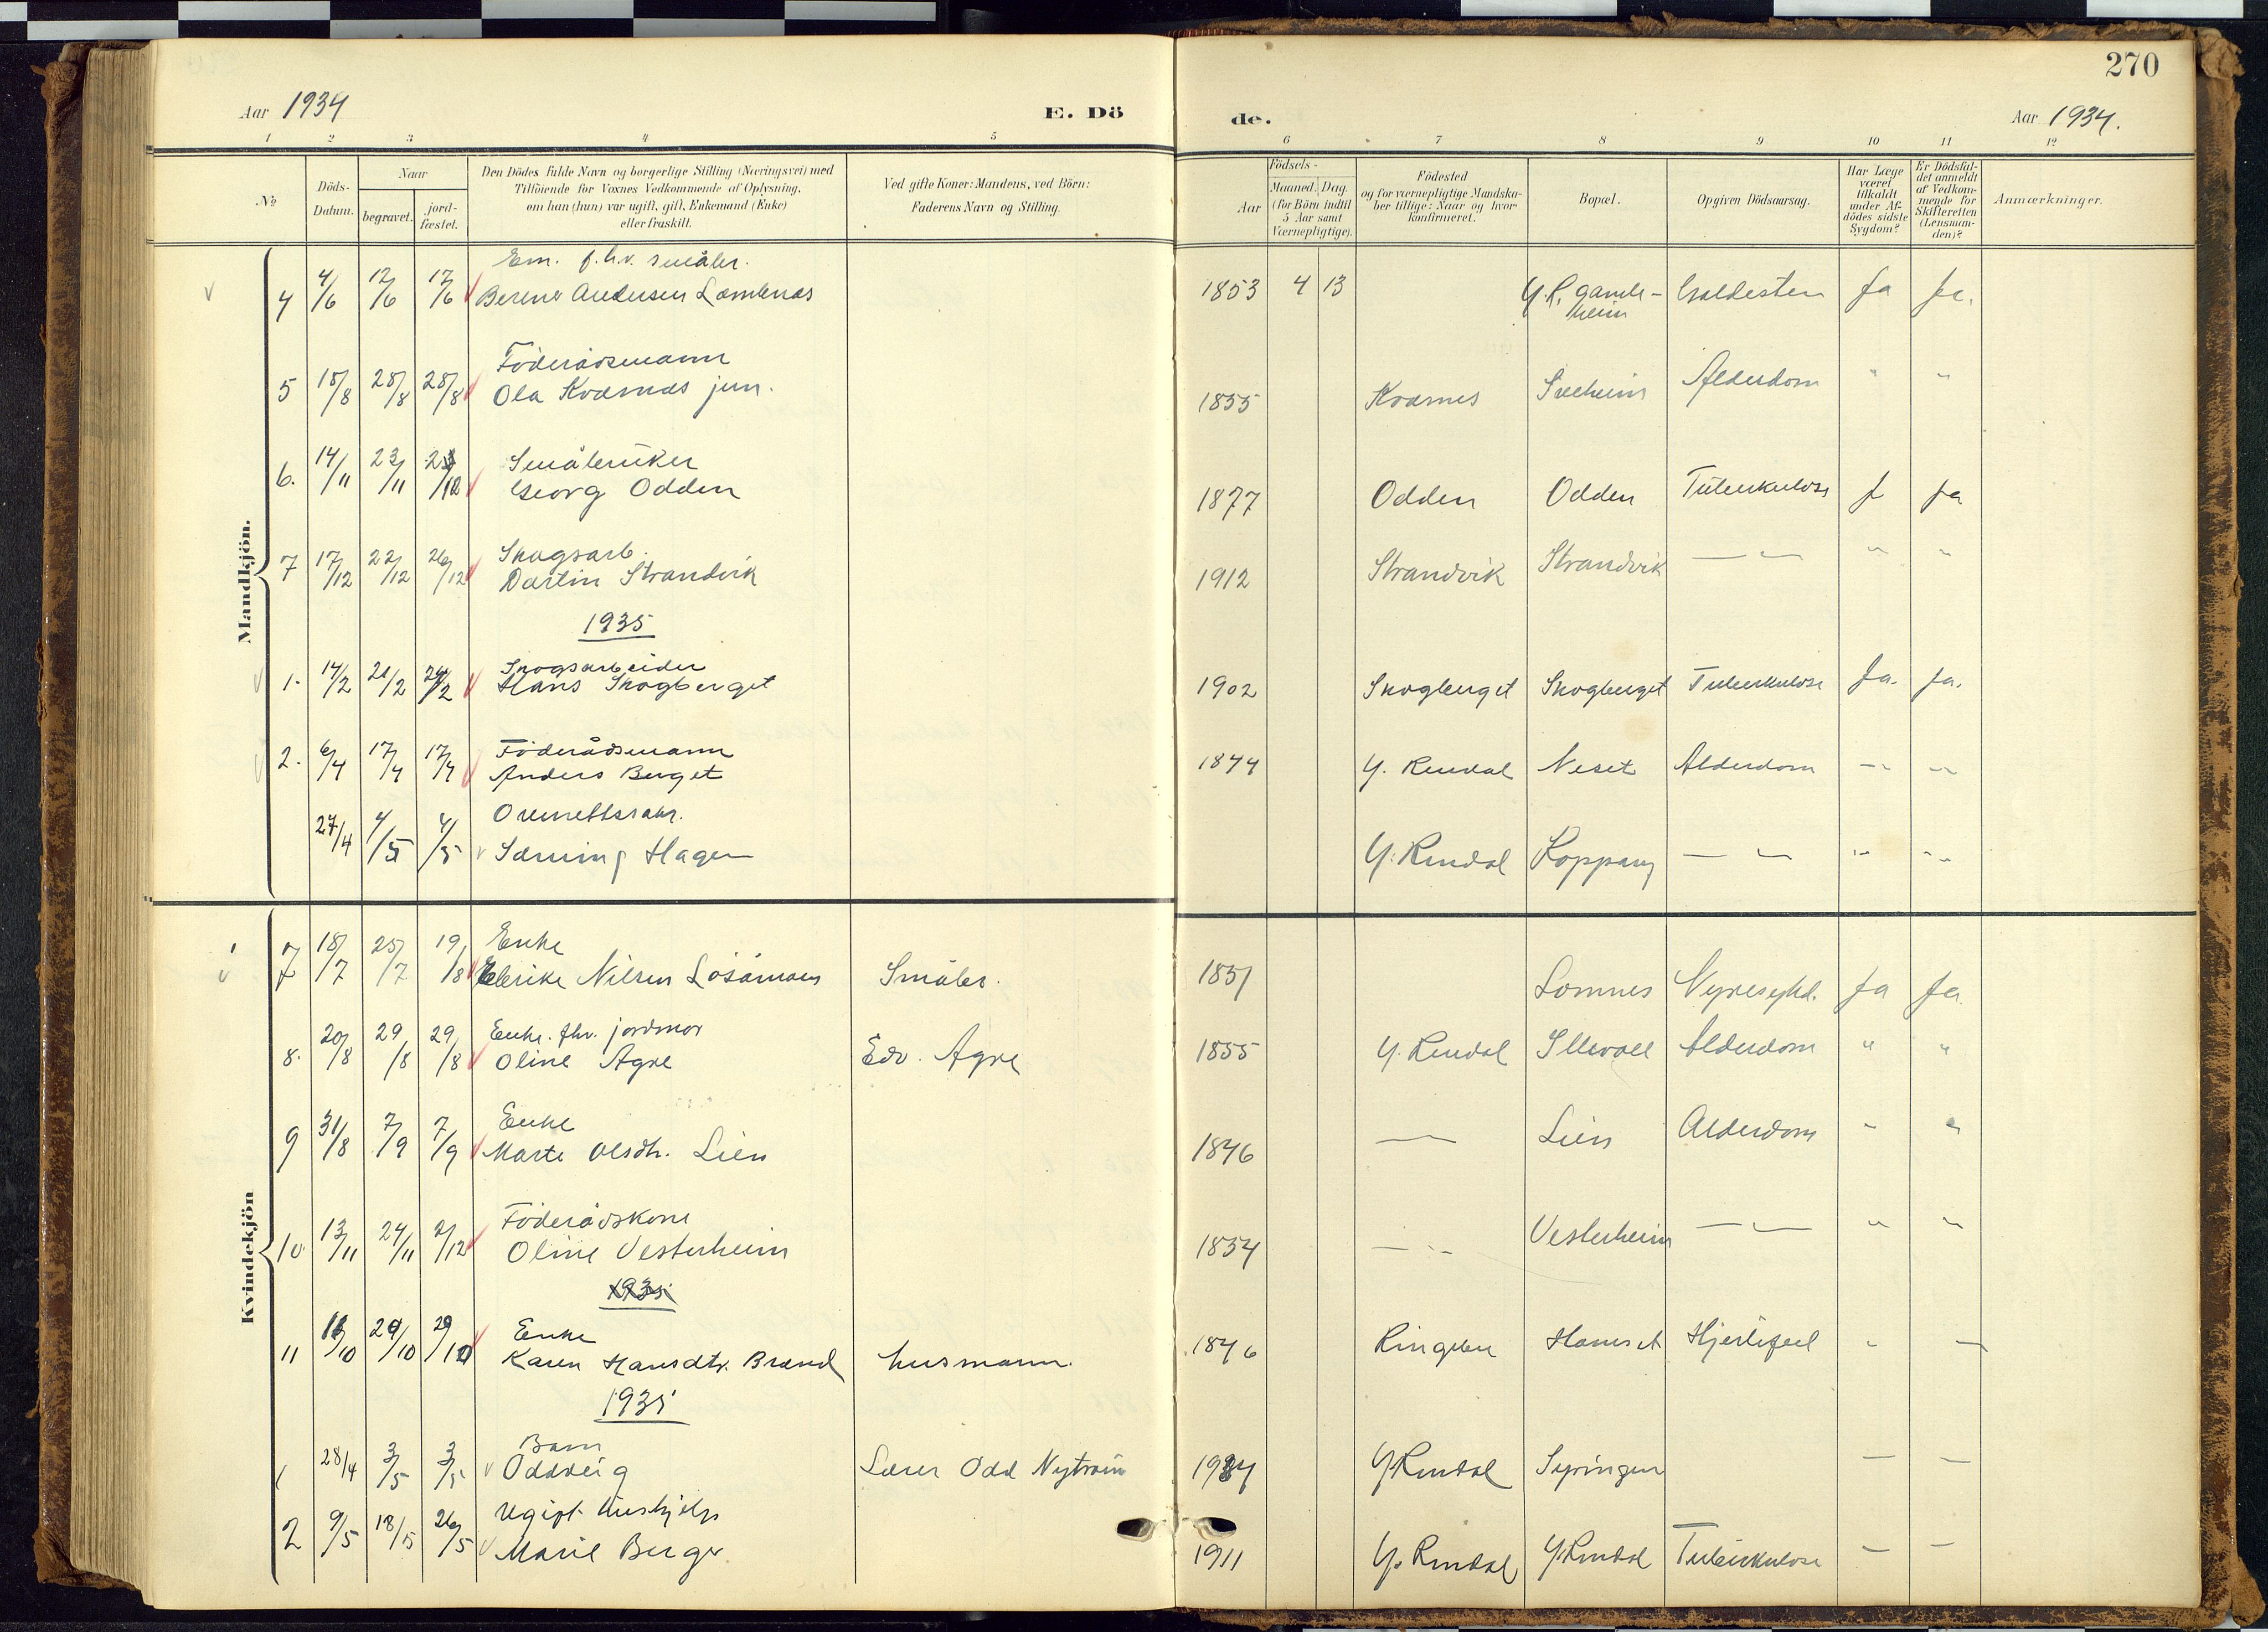 270
Aar 1934
E. Dö
de.
Aar 1934.
1 2 3 4 5 6 7 8 9 10 11 12
№
Döds-Datum.
Naar
begravet.
jord-fæstet.
Den Dödes fulde Navn og borgerlige Stilling (Næringsvei) med
Tilföiende for Voxnes Vedkommende af Oplysning,
om han (hun) var ugift, gift, Enkemand (Enke)
eller fraskilt.
Ved gifte Koner: Mandens, ved Börn:
Faderens Navn og Stilling.
Födsels-
Aar
Maaned. Dag.
(for Börn indtil
5 Aar samt
Værnepligtige).
Födested
og for værnepligtige Mandska-
ber tillige: Naar og hvor
konfirmeret.
Bopæl.
Opgiven Dödsaarsag.
Har Læge
været
tilkaldt
under Af-
dödes sidste
Sygdom?
Er Dödsfal-
det anmeldt
af Vedkom-
mende for
Skifteretten
(Lensman-
den)?
Anmærkninger.
Mandkjön.
Em. f.h.v. småbr.
4 4/6 12/6 12/6 Berner Andersen Lomnes 1853 4 13 Y.R. gamle- Galdesten Ja Ja.
heim
Föderådsmann
5 18/8 28/8 28/8 Ola Kværnes jun. 1855 Kværnes Solheim Alderdom " "
Småbruker
6. 14/11 23/11 Georg Odden 1877 Odden Odden Tuberkulose J Ja
Skogsarb.
7 17/12 22/12 26/12 Martin Strandvik 1912 Strandvik Strandvik — " — " "
1935
Skogsarbeider
1. 14/2 21/2 24/2 Hans Skogberget 1902 Skogberget Skogberget Tuberkulose Ja. Ja.
Föderådsmann
2. 6/4 17/4 17/4 Anders Berget 1844 Y. Rendal Neset Alderdom — " — "
27/4 4/5 4/5 Hagen Y. Rendal Koppang — " — " "
Kvindekjön
Enke
7 18/7 25/7 19/8 Nilsen Småbr. 1851 Lomnes Nyresykd. Ja Ja.
Enke. fhv. jordmor
8. 20/8 29/8 29/8 Oline Agre Edv. Agre 1855 Y. Rendal Alderdom " "
Enke
9 31/8 7/9 7/9 Marte Olsdtr. Lien 1846 — " — Lien Alderdom " "
Föderådskone
10 13/11 24/11 2/12 Oline Vesterheim 1854 — " — Vesterheim — " — " "
1935
Enke
11 29/10 Karen Hansdtr. Brænd husmann. 1846 Ringebu Hornset Hjertefeil " —
1935
Barn
1 28/4 3/5 3/5 Oddveig Lærer Odd Nytrøen 1934 Y. Rendal Syringen — —
Ugift hushjelp
2 9/5 18/5 26/5 Marie Berger 1911 Y. Rendal Y. Rendal Tuberkulose — —